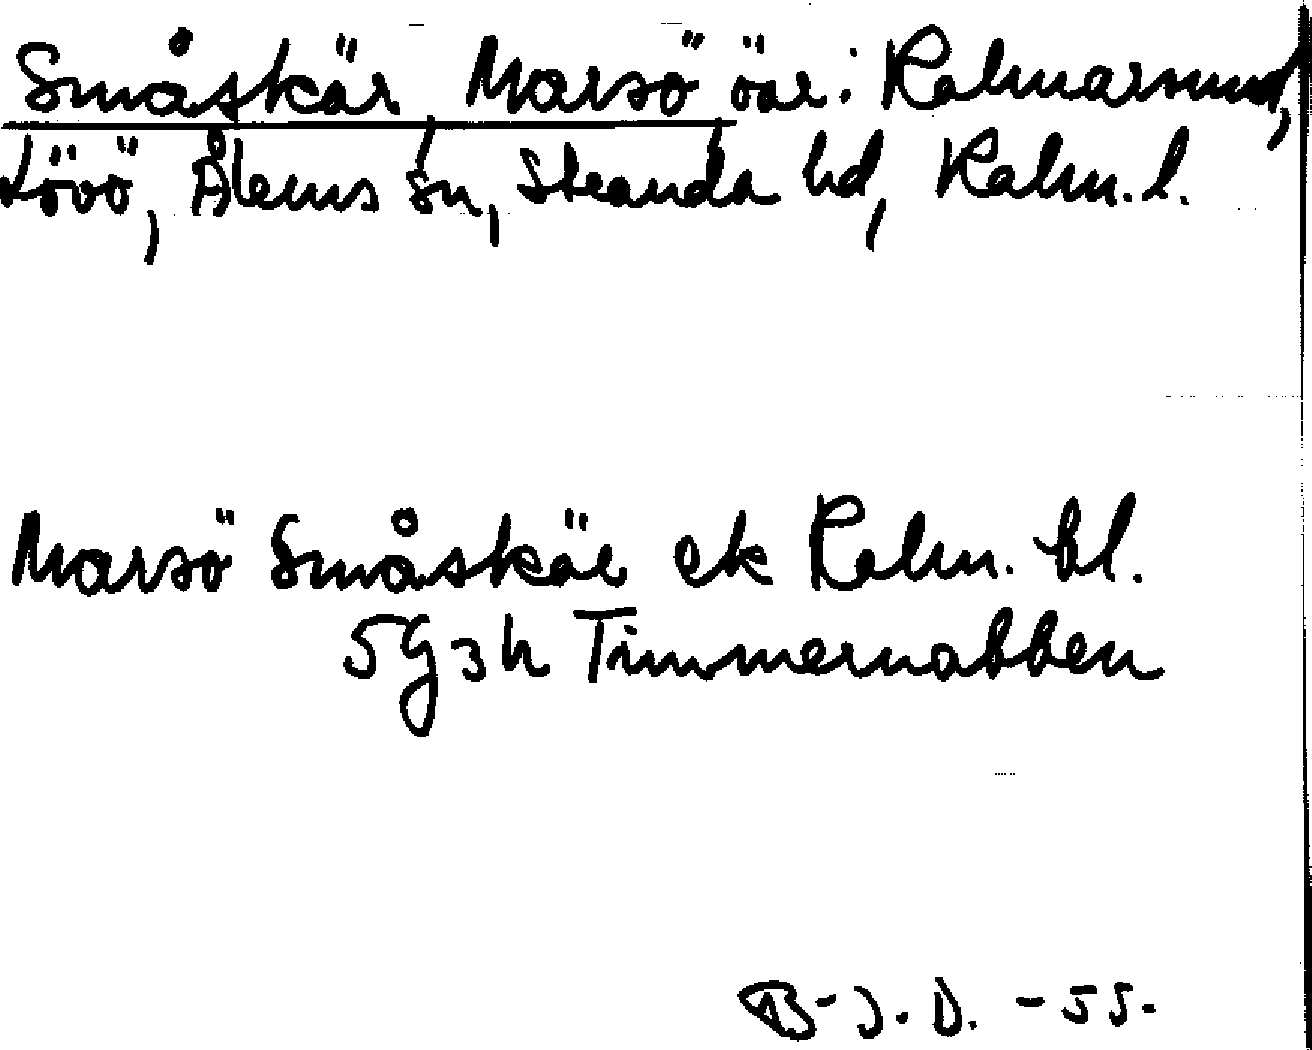 Småskär, Marsö, öar i Kalmarsund,
Lövö, Ålems sn, Stranda hd, Kalm. l.
Marsö Småskär ek Kalm. bl.
5G3h Timmernabben
B-J. D. -55.